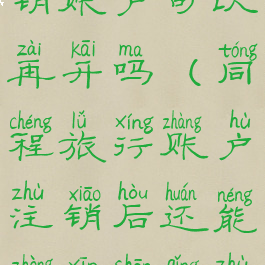 销账户可以
zài kāi ma tóng
再开吗（同
chéng lǚ xíng zhàng hù
程旅行账户
zhù xiāo hòu huán néng
注销后还能